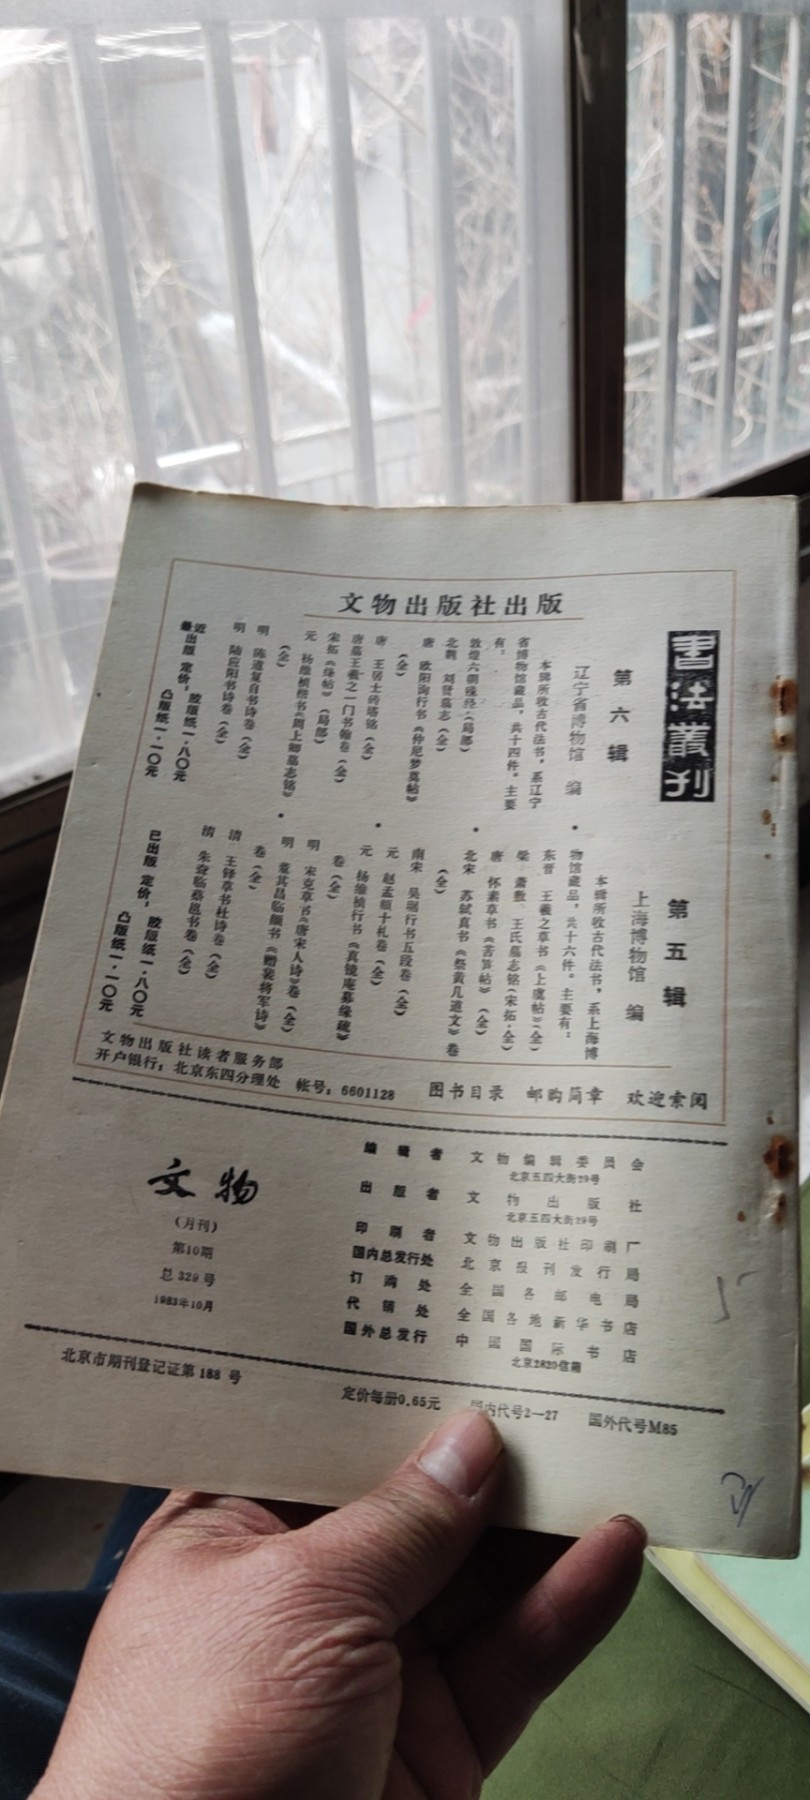 文物出版社出版
書法叢刊
第六辑
辽宁省博物馆 编
本辑所收古代法书，系辽宁
省博物馆藏品，共十四件。主要
有：
敦煌六朝残经（局部）
北魏 刘贤墓志（全）
唐 欧阳询行书《仲尼梦奠帖》
（全）
唐 王居士砖塔铭（全）
唐摹王羲之一门书翰卷（全）
宋拓《绛帖》（局部）
元 杨维桢楷书《周上卿墓志铭》
（全）
明 陈道复自书诗卷（全）
明 陆应阳书诗卷（全）
近最出版 定价：胶版纸一·八〇元
凸版纸一·一〇元
第五辑
上海博物馆 编
本辑所收古代法书，系上海博
物馆藏品，共十六件。主要有：
东晋 王羲之草书《上虞帖》（全）
梁 萧敷、王氏墓志铭（宋拓·全）
唐 怀素草书《苦笋帖》（全）
北宋 苏轼真书《祭黄几道文》卷
（全）
南宋 吴琚行书五段卷（全）
元 赵孟頫十札卷（全）
元 杨维桢行书《真镜庵募缘疏》
卷（全）
明 宋克草书《唐宋人诗》卷（全）
明 董其昌临颜书《赠裴将军诗》
卷（全）
清 王铎草书杜诗卷（全）
清 朱耷临蔡邕书卷（全）
已出版 定价：胶版纸一·八〇元
凸版纸一·一〇元
文物出版社读者服务部
开户银行：北京东四分理处 帐号：6601128 图书目录 邮购简章 欢迎索阅
文物
（月刊）
第10期
总 329 号
1983年10月
编辑者 文物编辑委员会
北京五四大街29号
出版者 文物出版社
北京五四大街29号
印刷者 文物出版社印刷厂
国内总发行处 北京报刊发行局
订购处 全国各邮电局
代销处 全国各地新华书店
国外总发行 中国国际书店
北京2820信箱
北京市期刊登记证第 188 号
定价每册0.65元 国内代号2—27 国外代号M85